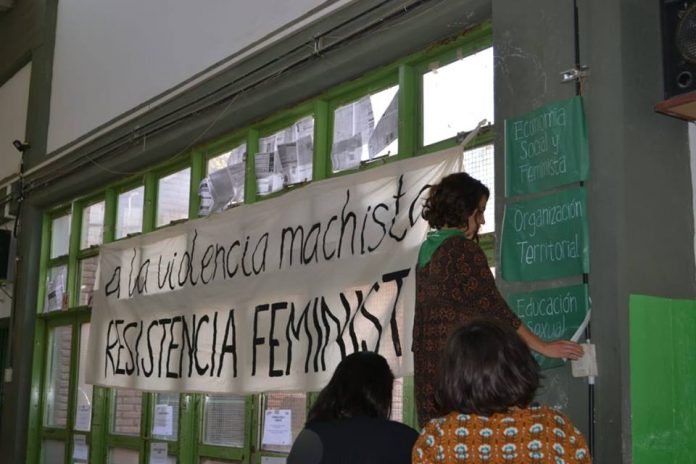 a la violencia machista
RESISTENCIA FEMINIST
Economía
Social y
Feminista
Organización
Territorial
Educación
Sexual